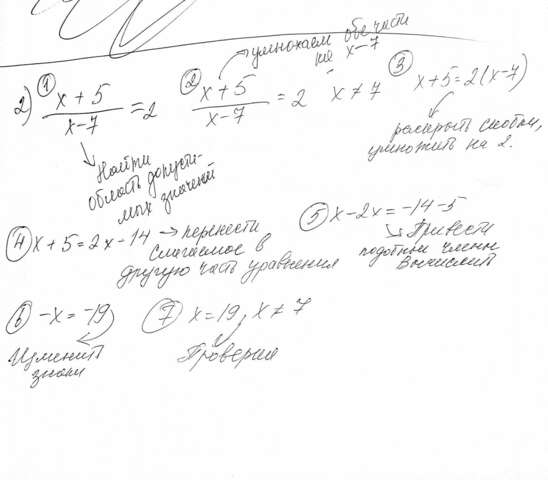 умножаем обе части
на x-7
2) ① x + 5 / x-7 = 2
② x+5 / x-7 = 2 x ≠ 7
③ x+5=2(x-7)
Найти
область допусти-
мых значений
раскрыть скобки,
умножить на 2.
④ x + 5 = 2x - 14 → перенести
слагаемое в
другую часть уравнения
⑤ x - 2x = -14 - 5
Привести
подобные члены
Вычислить
⑥ -x = -19
Изменить
знаки
⑦ x = 19, x ≠ 7